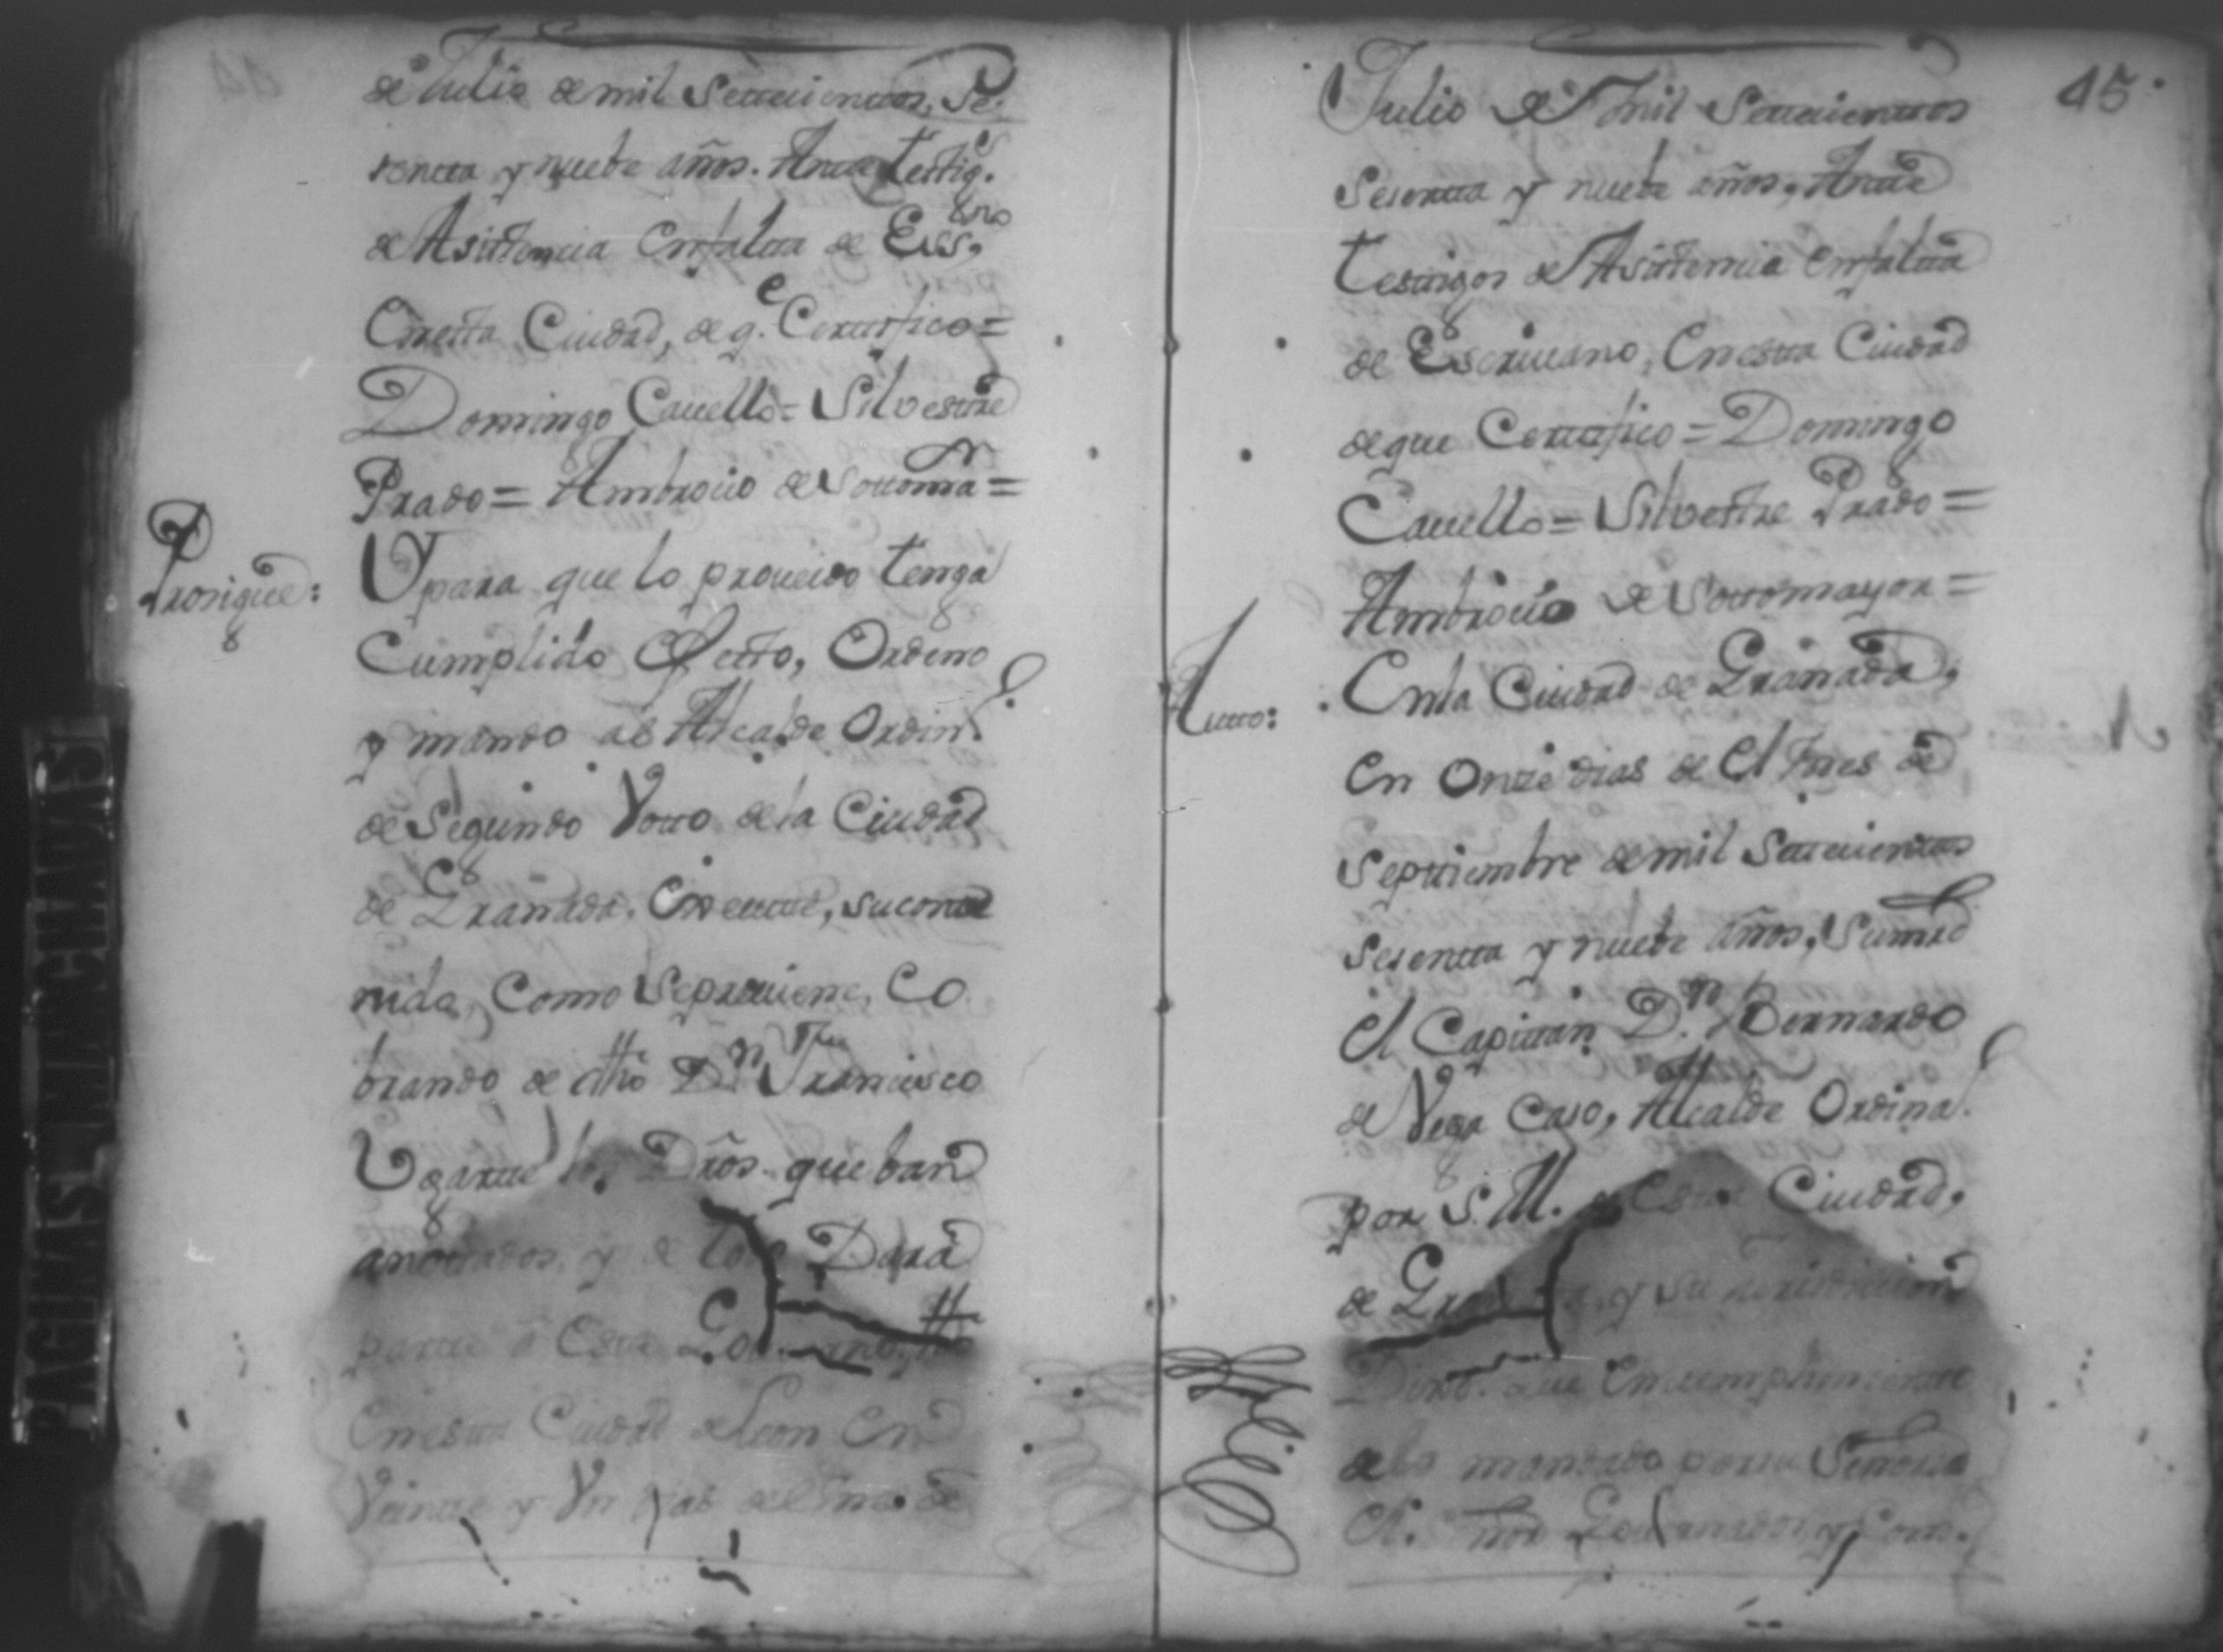 de Julio de mil Settecienttos, Se-
sentta y nuebe años. Antte Testtig.s
de Asisttencia Enfaltta de Ess.no
Enestta Ciudad, de q.e Certtifico =
Domingo Cavello = Silvesttre
Prado = Ambrocio de Sottomr.a =
Prosigue:
Y para que lo proveido tenga
Cumplido Efectto, Ordeno
y mando al Alcalde Ordin.l
de Segundo Votto dela Ciudad
de Granada. Executte, su conte
nido, Como Sepreviene, Co
brando de dho D.n Francisco
Ugartte los Dros. que ban
anottados y de todo Dará
partte á Estte Govierno, fho
Enestta Ciudad de Leon En
Veintte y Un dias del mes de
45.
Julio de mil Settecienttos
Sesentta y nuebe años, Antte
Testtigos de Asisttencia Enfaltta
de Escrivano, Enestta Ciudad
deque Certtifico = Domingo
Cavello = Silvesttre Prado =
Ambrocio de Sottomayor =
Autto:
Enla Ciudad de Granada,
en Onze dias de el mes de
Septtiembre de mil Settecienttos
Sesentta y nuebe años, Sumrd
el Capittan D.n Bernardo
de Vega Caso, Alcalde Ordina.l
por S. M. Estta Ciudad,
de Granada, y su Jurisdiccion
Dixo. que Encumplimientto
delo mandado porsu Señoria
El Señor Governador y Com.